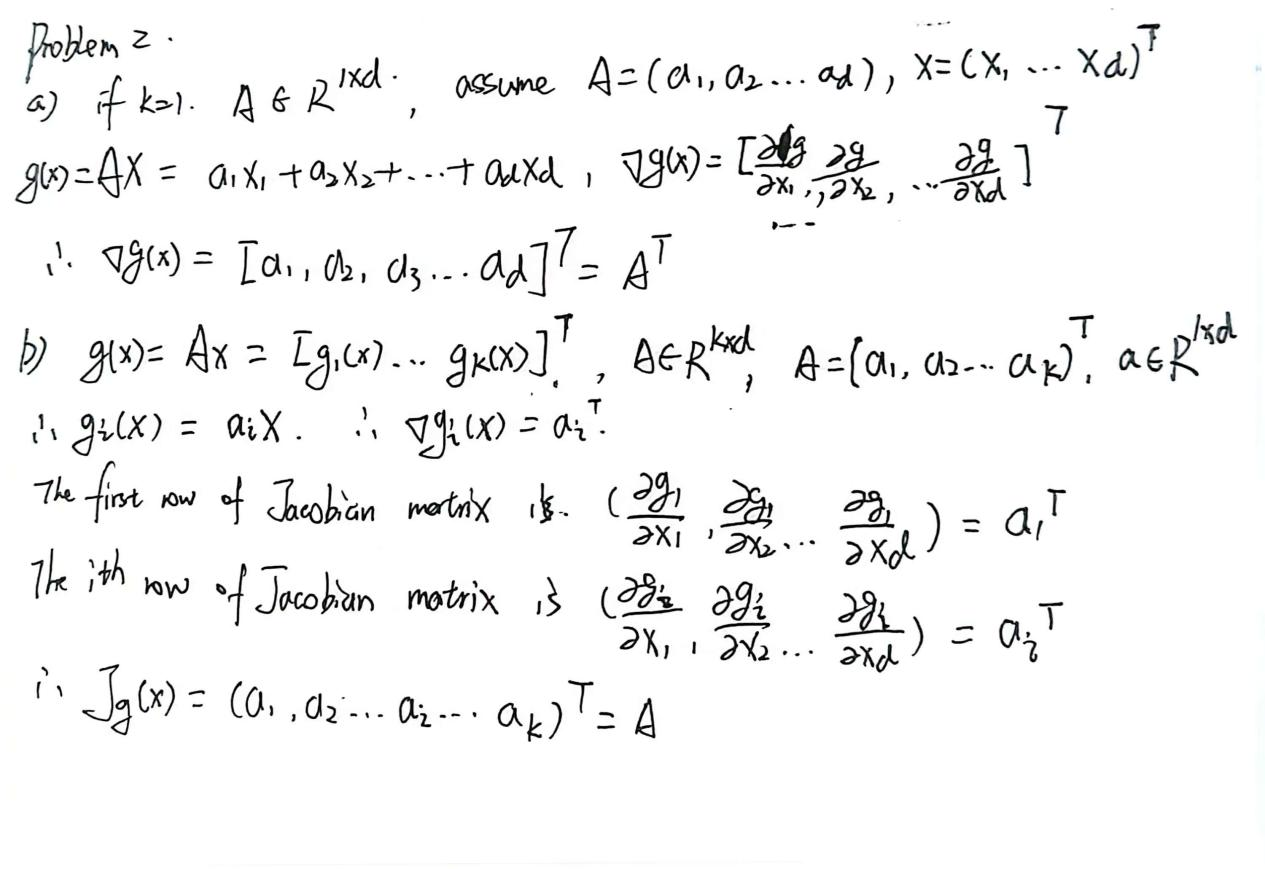 Problem 2.
a) if k=1. A ∈ R^{1×d}, assume A=(a₁, a₂ ... a_d), X=(X₁ ... X_d)^T
g(x)=AX = a₁X₁ + a₂X₂+...+ a_dX_d, ∇g(x)= [∂g/∂x₁, ∂g/∂x₂, ... ∂g/∂x_d]^T
∴ ∇g(x) = [a₁, a₂, a₃ ... a_d]^T = A^T
b) g(x)= Ax = [g₁(x) ... g_k(x)]^T, A∈R^{k×d}, A=[a₁, a₂ ... a_k)^T, a∈R^{1×d}
∴ g_i(x) = a_iX. ∴ ∇g_i(x) = a_i^T.
The first row of Jacobian matrix is. (∂g₁/∂x₁, ∂g₁/∂x₂ ... ∂g₁/∂x_d) = a₁^T
The ith row of Jacobian matrix is (∂g_i/∂x₁, ∂g_i/∂x₂ ... ∂g_i/∂x_d) = a_i^T
∴ J_g(x) = (a₁, a₂ ... a_i ... a_k)^T = A